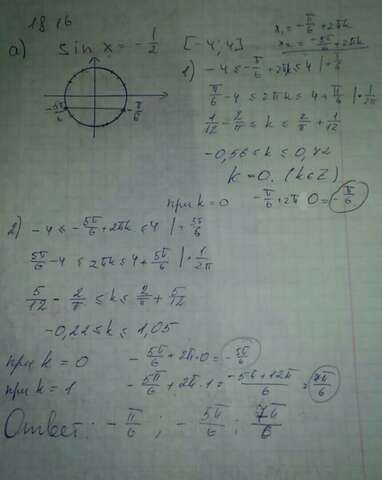 18.16
а) sin x = -1/2 [-4; 4] x₁ = -π/6 + 2πk
x₂ = -5π/6 + 2πk
-5π/6 -π/6
1) -4 ≤ -π/6 + 2πk ≤ 4 | + π/6
π/6 - 4 ≤ 2πk ≤ 4 + π/6 | · 1/2π
1/12 - 2/π ≤ k ≤ 2/π + 1/12
-0,56 ≤ k ≤ 0,72
k = 0. (k∈Z)
при k = 0 -π/6 + 2π·0 = -π/6
2) -4 ≤ -5π/6 + 2πk ≤ 4 | + 5π/6
5π/6 - 4 ≤ 2πk ≤ 4 + 5π/6 | · 1/2π
5/12 - 2/π ≤ k ≤ 2/π + 5/12
-0,22 ≤ k ≤ 1,05
при k = 0 -5π/6 + 2π·0 = -5π/6
при k = 1 -5π/6 + 2π·1 = (-5π + 12π)/6 = 7π/6
Ответ: -π/6 ; -5π/6 ; 7π/6